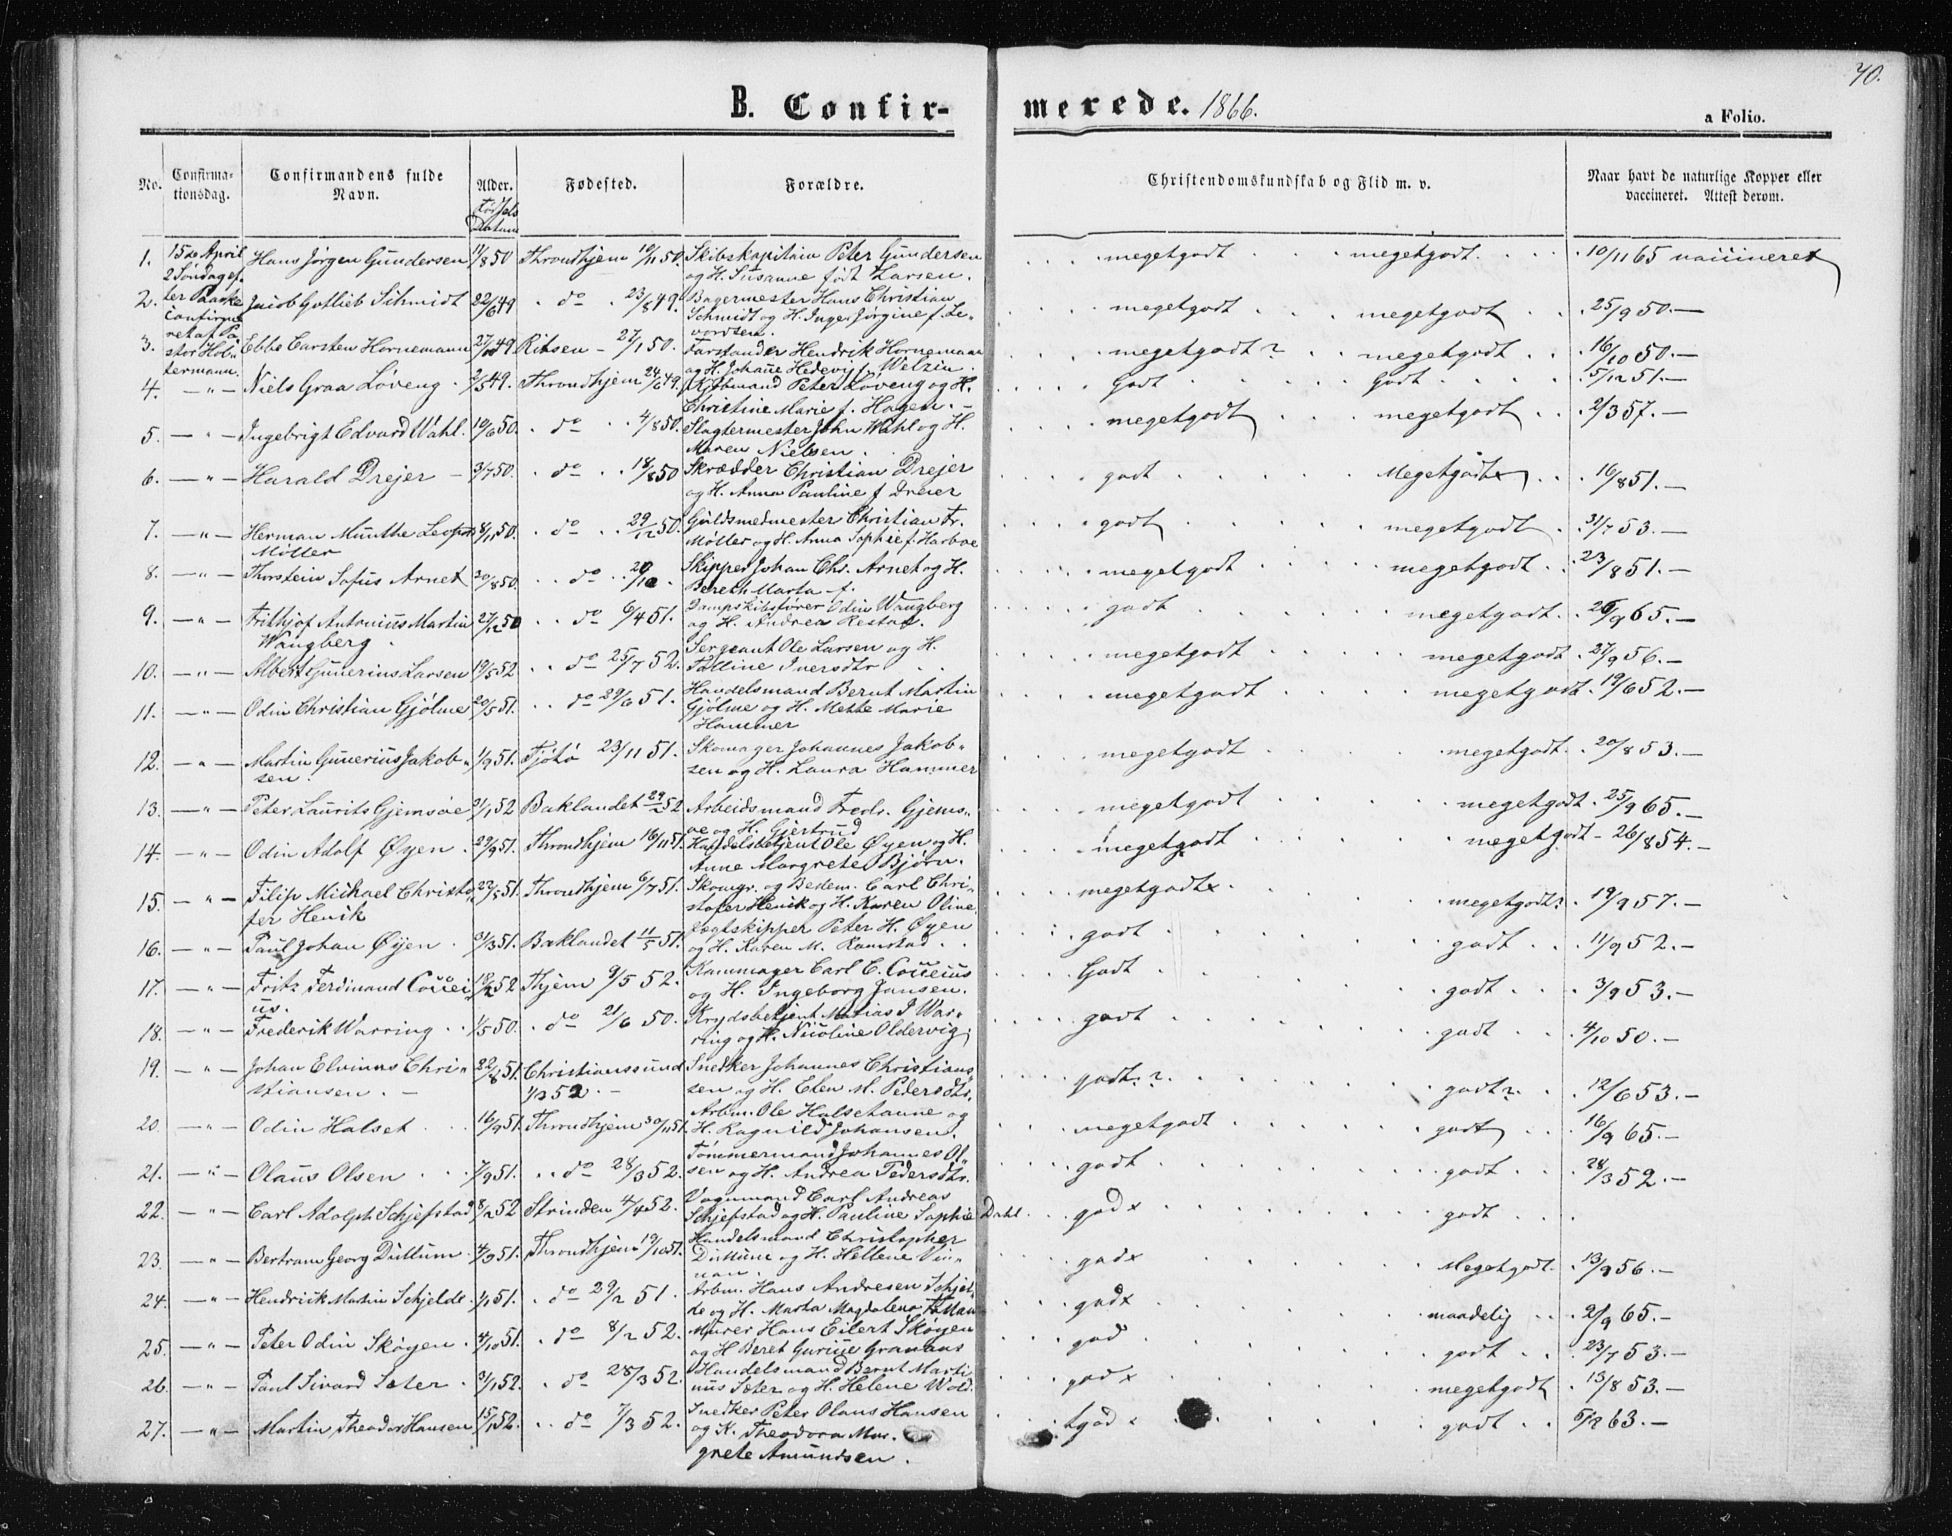 70.
B. Confirmerede. 1866.
a Folio.
No. Confirmationsdag. Confirmandens fulde Navn. Alder. Fødested. Forældre. Christendomskundskab og Flid m. v. Naar havt de naturlige Kopper eller vaccineret. Attest derom.
Datum
15de April
2 Søndag ef-
ter Paaske
1. Hans Jørgen Gundersen 11/8 50 Throndhjem 50. Skibskapitain Peter Gundersen
og H. Susanne født Larsen. megetgodt megetgodt. 10/11 65 vaccineret
2. Jacob Gotlieb Schmidt 22/6 49 do 23/8 49. Bagermester Hans Christian
Schmidt og H. Inger Jørgine f. Le-
vordsen. megetgodt megetgodt 25/9 50.—
3. Ebbe Carsten Hornemann 49 27/1 50. Forstander Hendrik Hornemann
og H. Johane Welzin. megetgodt? megetgodt 16/10 50.—
4. —"— Niels Graa Løveng 2/5 49. Throndhjem 24/6 49. Kjøbmand Peter Løveng og H.
Christine Marie f. Hagen.— Godt Godt 5/12 51.—
5. —"— Ingebrigt Edvard Wahl. 10/6 50. do 4/8 50. Slagtermester John Wahl og H.
Maren Nielsen. megetgodt megetgodt 2/3 57.—
6. —"— Harald Drejer — 3/7 50. do 18/8 50 Skrædder Christian Drejer
og H. Anna Pauline f Dreier godt Megetgodt 16/8 51.—
7. —"— Herman Munthe 8/11 50. do 29/12 50. Guldsmedmester Christian Fr.
Møller Møller og H. Anna Sophie f. Harboe godt megetgodt 31/7 53.—
8. —"— Thorstein Sofus Arnet 20/8 50. do Skipper Johan Chr. Arnet og H.
Bereth Marta f. megetgodt megetgodt 23/8 51.—
9. —"— Frithjof Antonius Martin 27/12 50 do 6/4 51. Dampskibsfører Odin Wangberg
Wangberg. og H. Andrea godt megetgodt 65.—
10. —"— Albert Gunerius Larsen 19/5 52 do 25/7 52. Sergeant Ole Larsen og H.
Iversdtr megetgodt megetgodt 27/9 56.—
11. —"— Odin Christian Gjølme 20/5 51. do 29/6 51. Handelsmand Bernt Martin
Gjølme og H. Mette Marie
Hammer megetgodt megetgodt. 19/6 52.—
12. —"— Martin Gunerius Jakob- 1/9 51. Tjøtø 23/11 51. Skomager Johannes Jakob-
sen. sen og H. Laura Hammer megetgodt megetgodt. 20/8 53.—
13. —"— Peter Laurits Gjemsøe 2/1 52 Baklandet 29/2 52 Arbeidsmand Fredr. Gjems-
øe og H. Gjertrud megetgodt megetgodt. 25/9 65.—
14 —"— Odin Adolf Øyen 29/9 51. Throndhjem 16/11 51. Handelsbetjent Ole Øyen og H.
Anne Margrete Bjørn. megetgodt megetgodt — 26/8 54.—
15. —"— Filip Michael Christo- 51. Throndhjem 6/7 51. Skomgr. og Bedem. Carl Chri-
fer Henik stofer Henik og H. Karen Oline megetgodt megetgodt? 19/9 57.—
16. —"— Paul Johan Øyen 3/3 51. Baklandet 11/5 51. Jægtskipper Peter H. Øyen
og H. Karen M. Ramstad godt godt 11/9 52.—
17. —"— Fritz Ferdinand Coccei- 52 Thjem 9/5 52. Kammager Carl C. Cocceius
us. og H. Ingeborg Jansen. Godt godt 3/9 53.—
18. —"— Frederik Warring 1/5 50. do 21/6 50. Krydsbetjent Matias J War-
ring og H. Nicoline Oldervig godt godt 4/10 50.—
19. —"— Johan Elvinus Chri- 22/8 51. Christianssund Snedker Johannes Christian-
stiansen. — 52. — sen og H. Elen M. Pedersdtr. godt? godt? 12/6 53.—
20. —"— Odin Halset 16/9 51. Throndhjem 30/11 51. Arbm. Ole Halsetaune og
H. Ragnild Johansen. megetgodt godt 16/9 65.—
21. —"— Olaus Olsen 7/9 51. do 28/3 52. Tømmermand Johannes Ol-
sen og H. Andrea Pedersdtr. godt godt 28/3 52.—
22. —"— Carl Adolph Schjefstad 8/2 52 Strinden 4/4 52. Vognmand Carl Andreas
Schjefstad og H. Pauline Sophie Dahl. god godt
23. —"— Bertram Georg Duttum 4/9 51. Throndhjem 19/10 51. Handelsmand Christopher
Duttum og H. Hellene Vin-
nan. god Megetgodt. 13/9 56.—
24. —"— Hendrick Martin Schjelde 51. do 29/2 51. Arbm. Hans Andresen Schjel-
de og H. Marta Magdalena god maadelig 2/9 65.—
25. —"— Peter Odin Skøyen 4/10 51. do 8/2 52. Murer Hans Eilert Skøyen
og H Beret Gurine Granaas god godt 23/7 53.—
26. —"— Paul Sivard Sæter 3/1 52. do 28/3 52. Handelsmand Bernt Marti-
nus Sæter og H. Helene Wold. god megetgodt 13/8 53.—
27. —"— Martin Theodor Hansen 15/1 52. do 7/3 52. Snedker Peter Olaus Hansen
og H. Theodora Mar-
grete Amundsen. god godt 63.—